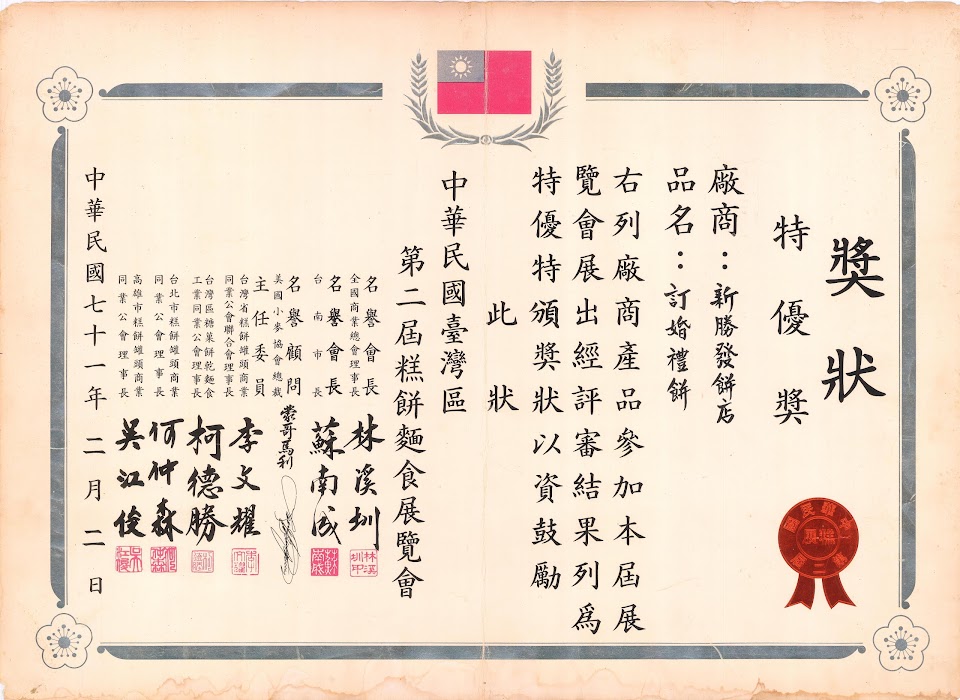 獎狀
特優獎
廠商：新勝發餅店
品名：訂婚禮餅
右列廠商產品參加本屆展
覽會展出經評審結果列為
特優特頒獎狀以資鼓勵
此狀
中華民國臺灣區
第二屆糕餅麵食展覽會
名譽會長
全國商業總會理事長
林溪圳
名譽會長
台南市長
蘇南成
名譽顧問
美國小麥協會總裁
蒙哥馬利
主任委員
台灣省糕餅罐頭商業
同業公會聯合會理事長
李文耀
台灣區糖菓餅乾麵食
工業同業公會理事長
柯德勝
台北市糕餅罐頭商業
同業公會理事長
何仲森
高雄市糕餅罐頭商業
同業公會理事長
吳江俊
中華民國七十一年二月二日